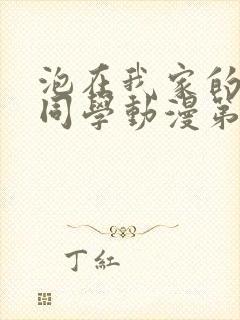 泡在我家的
同學動漫第
丁紅